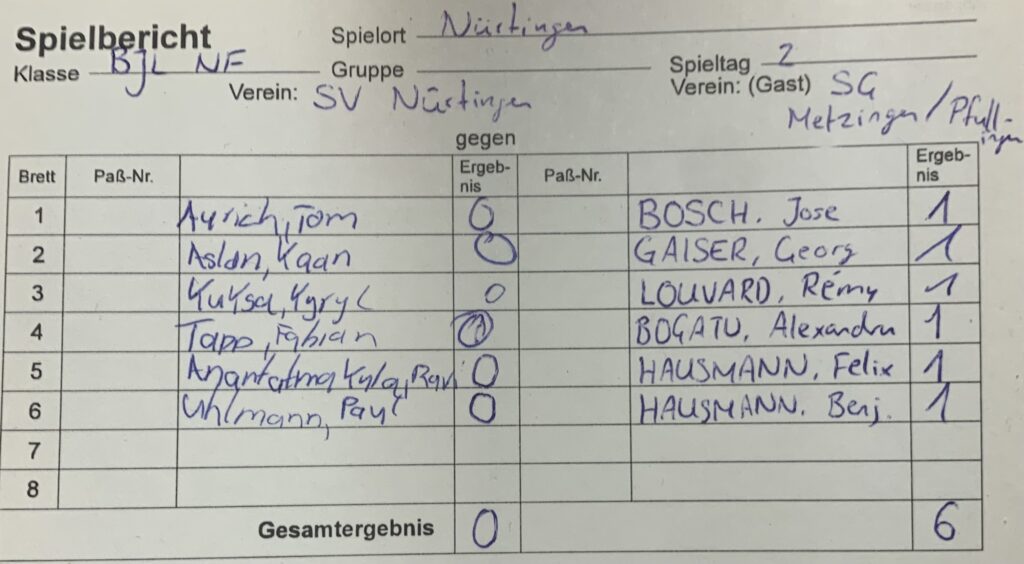 Spielbericht Spielort Nürtingen
Klasse BJL NF Gruppe Spieltag 2
Verein: SV Nürtingen Verein: (Gast) SG
Metzingen/Pfull-
ingen
gegen
Brett Paß-Nr. Ergeb-
nis Paß-Nr. Ergeb-
nis
1 Aurich, Tom 0 BOSCH. Jose 1
2 Aslan, Kaan 0 GAISER, Georg 1
3 Kuksa, Kyryl 0 LOUVARD, Rémy 1
4 Tapp, Fabian 0 BOGATU, Alexandru 1
5 Anantatmakula, Ravi 0 HAUSMANN, Felix 1
6 Uhlmann, Paul 0 HAUSMANN. Benj. 1
7
8
Gesamtergebnis 0 6